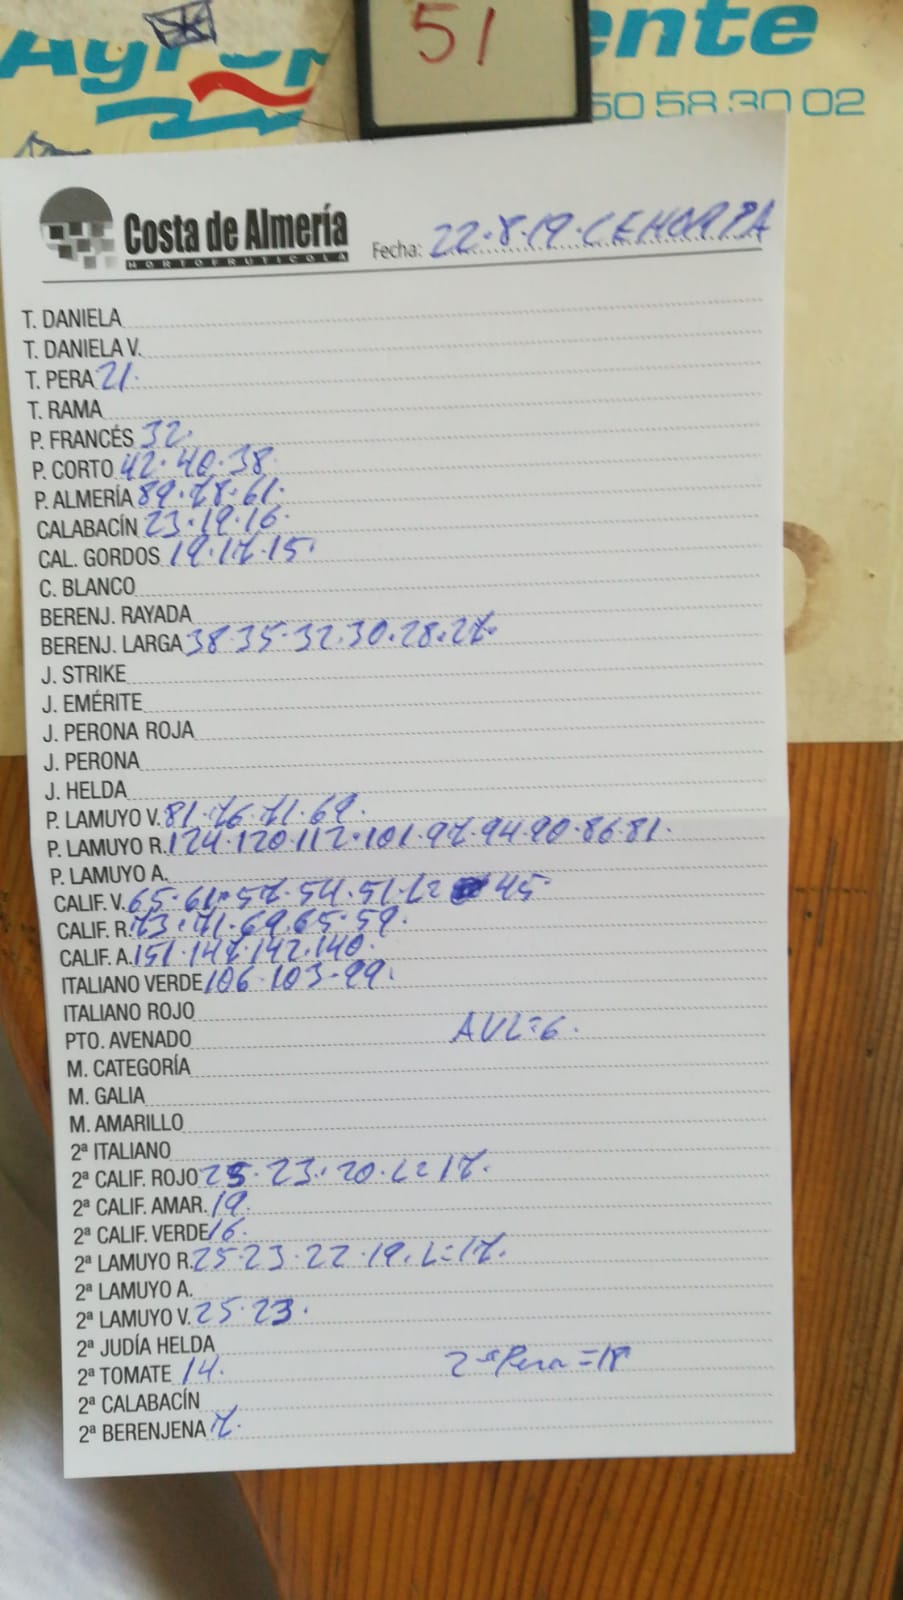 51
Agrop nte
50 58 30 02
Costa de Almería
HORTOFRUTICOLA
Fecha: 22.8.19. CEHORPA
T. DANIELA
T. DANIELA V.
T. PERA 21.
T. RAMA
P. FRANCÉS 32.
P. CORTO 42.40.38
P. ALMERÍA 89.78.61.
CALABACÍN 23.19.16.
CAL. GORDOS 19.17.15.
C. BLANCO
BERENJ. RAYADA
BERENJ. LARGA 38.35.32.30.28.27.
J. STRIKE
J. EMÉRITE
J. PERONA ROJA
J. PERONA
J. HELDA
P. LAMUYO V. 81.76.71.69.
P. LAMUYO R. 124.120.112.101.97.94.90.86.81.
P. LAMUYO A.
CALIF. V. 65.61.57.54.51.L= 45.
CALIF. R. 73.71.69.65.59.
CALIF. A. 151.147.142.140.
ITALIANO VERDE 106.103.99.
ITALIANO ROJO
PTO. AVENADO AVL=6.
M. CATEGORÍA
M. GALIA
M. AMARILLO
2ª ITALIANO
2ª CALIF. ROJO 25.23.20.L=17.
2ª CALIF. AMAR. 19.
2ª CALIF. VERDE 16.
2ª LAMUYO R. 25.23.22.19.L=17.
2ª LAMUYO A.
2ª LAMUYO V. 25.23.
2ª JUDÍA HELDA
2ª TOMATE 14. 2ª Pera =18
2ª CALABACÍN
2ª BERENJENA 7.